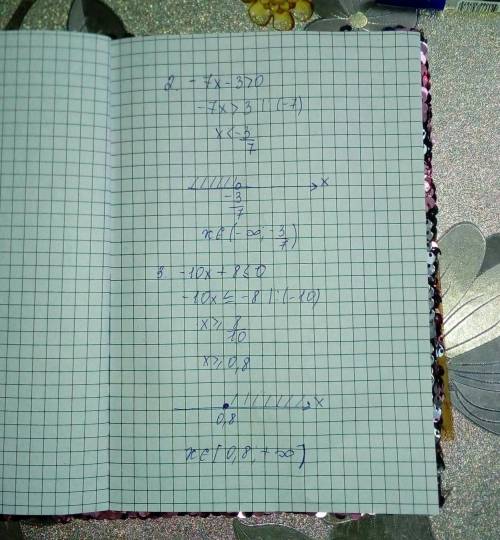 2. -7x-3>0
-7x>3 |:(-7)
x<-3/7
x
-3/7
x∈(-∞,-3/7)
3. -10x+8≤0
-10x≤-8 |:(-10)
x⩾8/10
x⩾0,8
x
0,8
x∈[0,8,+∞]